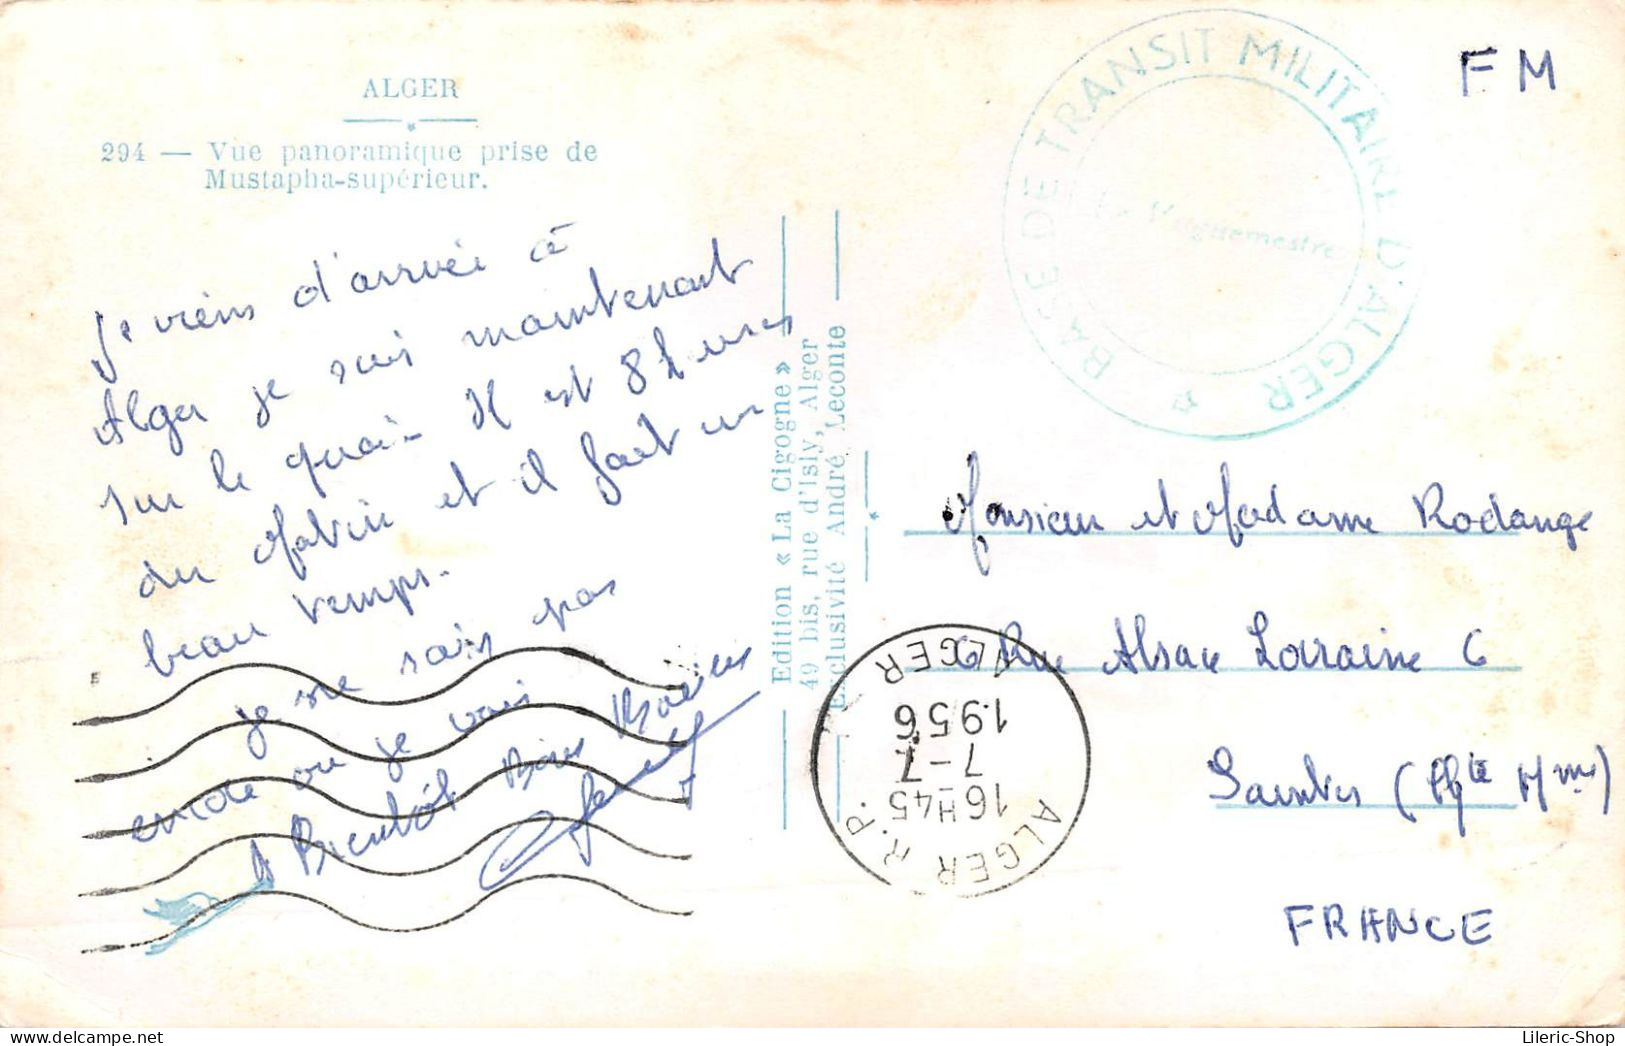 ALGER
294 — Vue panoramique prise de
Mustapha-supérieur.
Je viens d'arrivée à
Alger je suis maintenant
sur le quai- Il est 8 heures
du Matin et il fait un
beau temps.
je ne sais pas
encore ou je vais
A Bientôt Bons Baisers
Edition « La Cigogne »
49 bis, rue d'Isly, Alger
Exclusivité André Leconte
BASE DE TRANSIT MILITAIRE D'ALGER
Le Vaguemestre
FM
Monsieur et Madame Rodange
6 Rue Alsace Lorraine 6
Saintes (Chte Mme)
FRANCE
ALGER R.P. ALGER
16H45
7-7
1956
Lileric-Shop